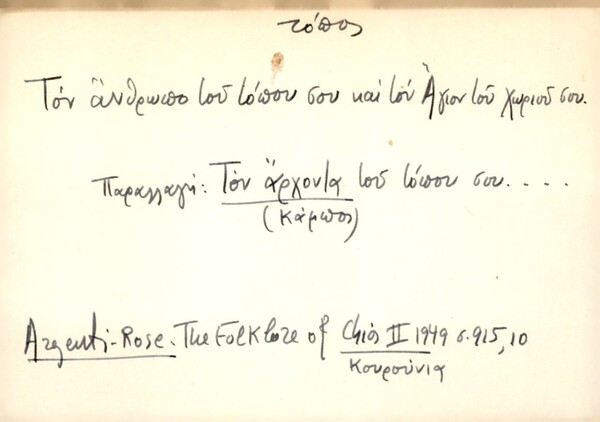 τόπος
Τὸν ἄνθρωπο τοῦ τόπου σου καὶ τὸν Ἅγιον τοῦ χωριοῦ σου.
Παραλλαγή: Τὸν ἄρχοντα τοῦ τόπου σου....
(Κάμπος)
Argenti-Rose. The Folklore of Chios II 1949 σ. 915, 10
Κουρούνια